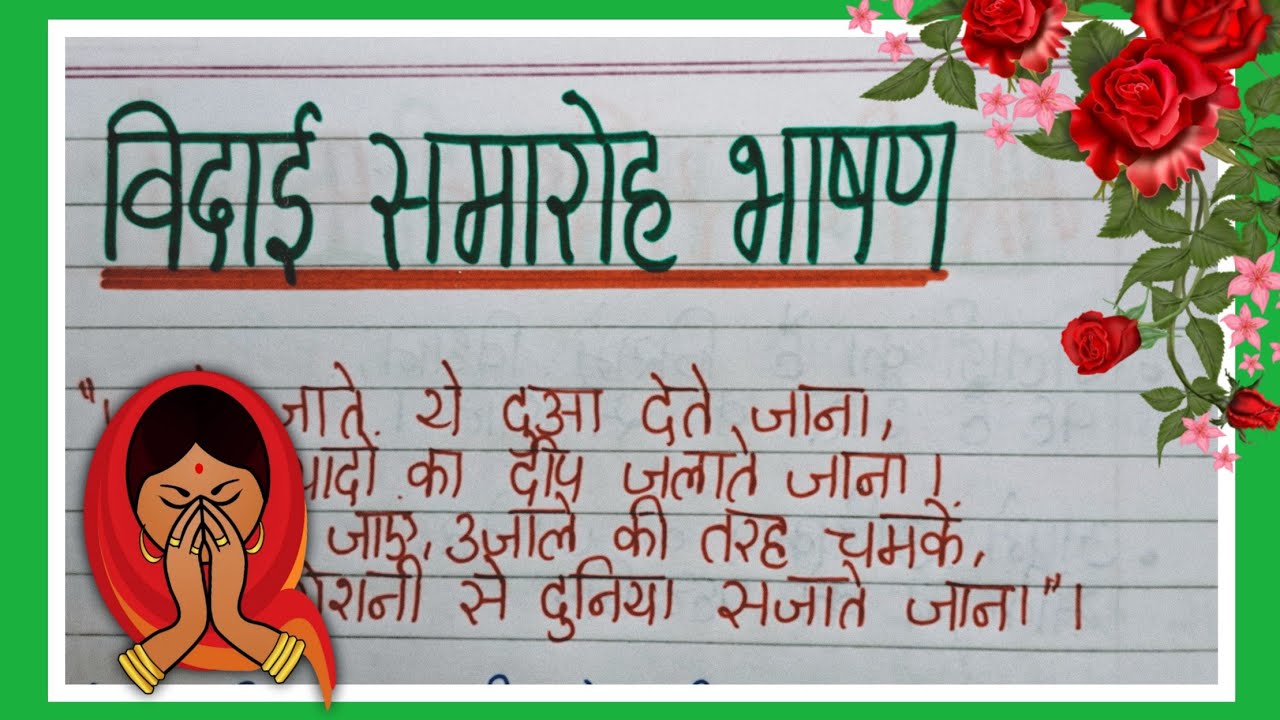 विदाई समारोह भाषण
जाते ये दुआ देते जाना,
का दीप जलाते जाना।
जाए, उजाले की तरह चमकें,
से दुनिया सजाते जाना"।